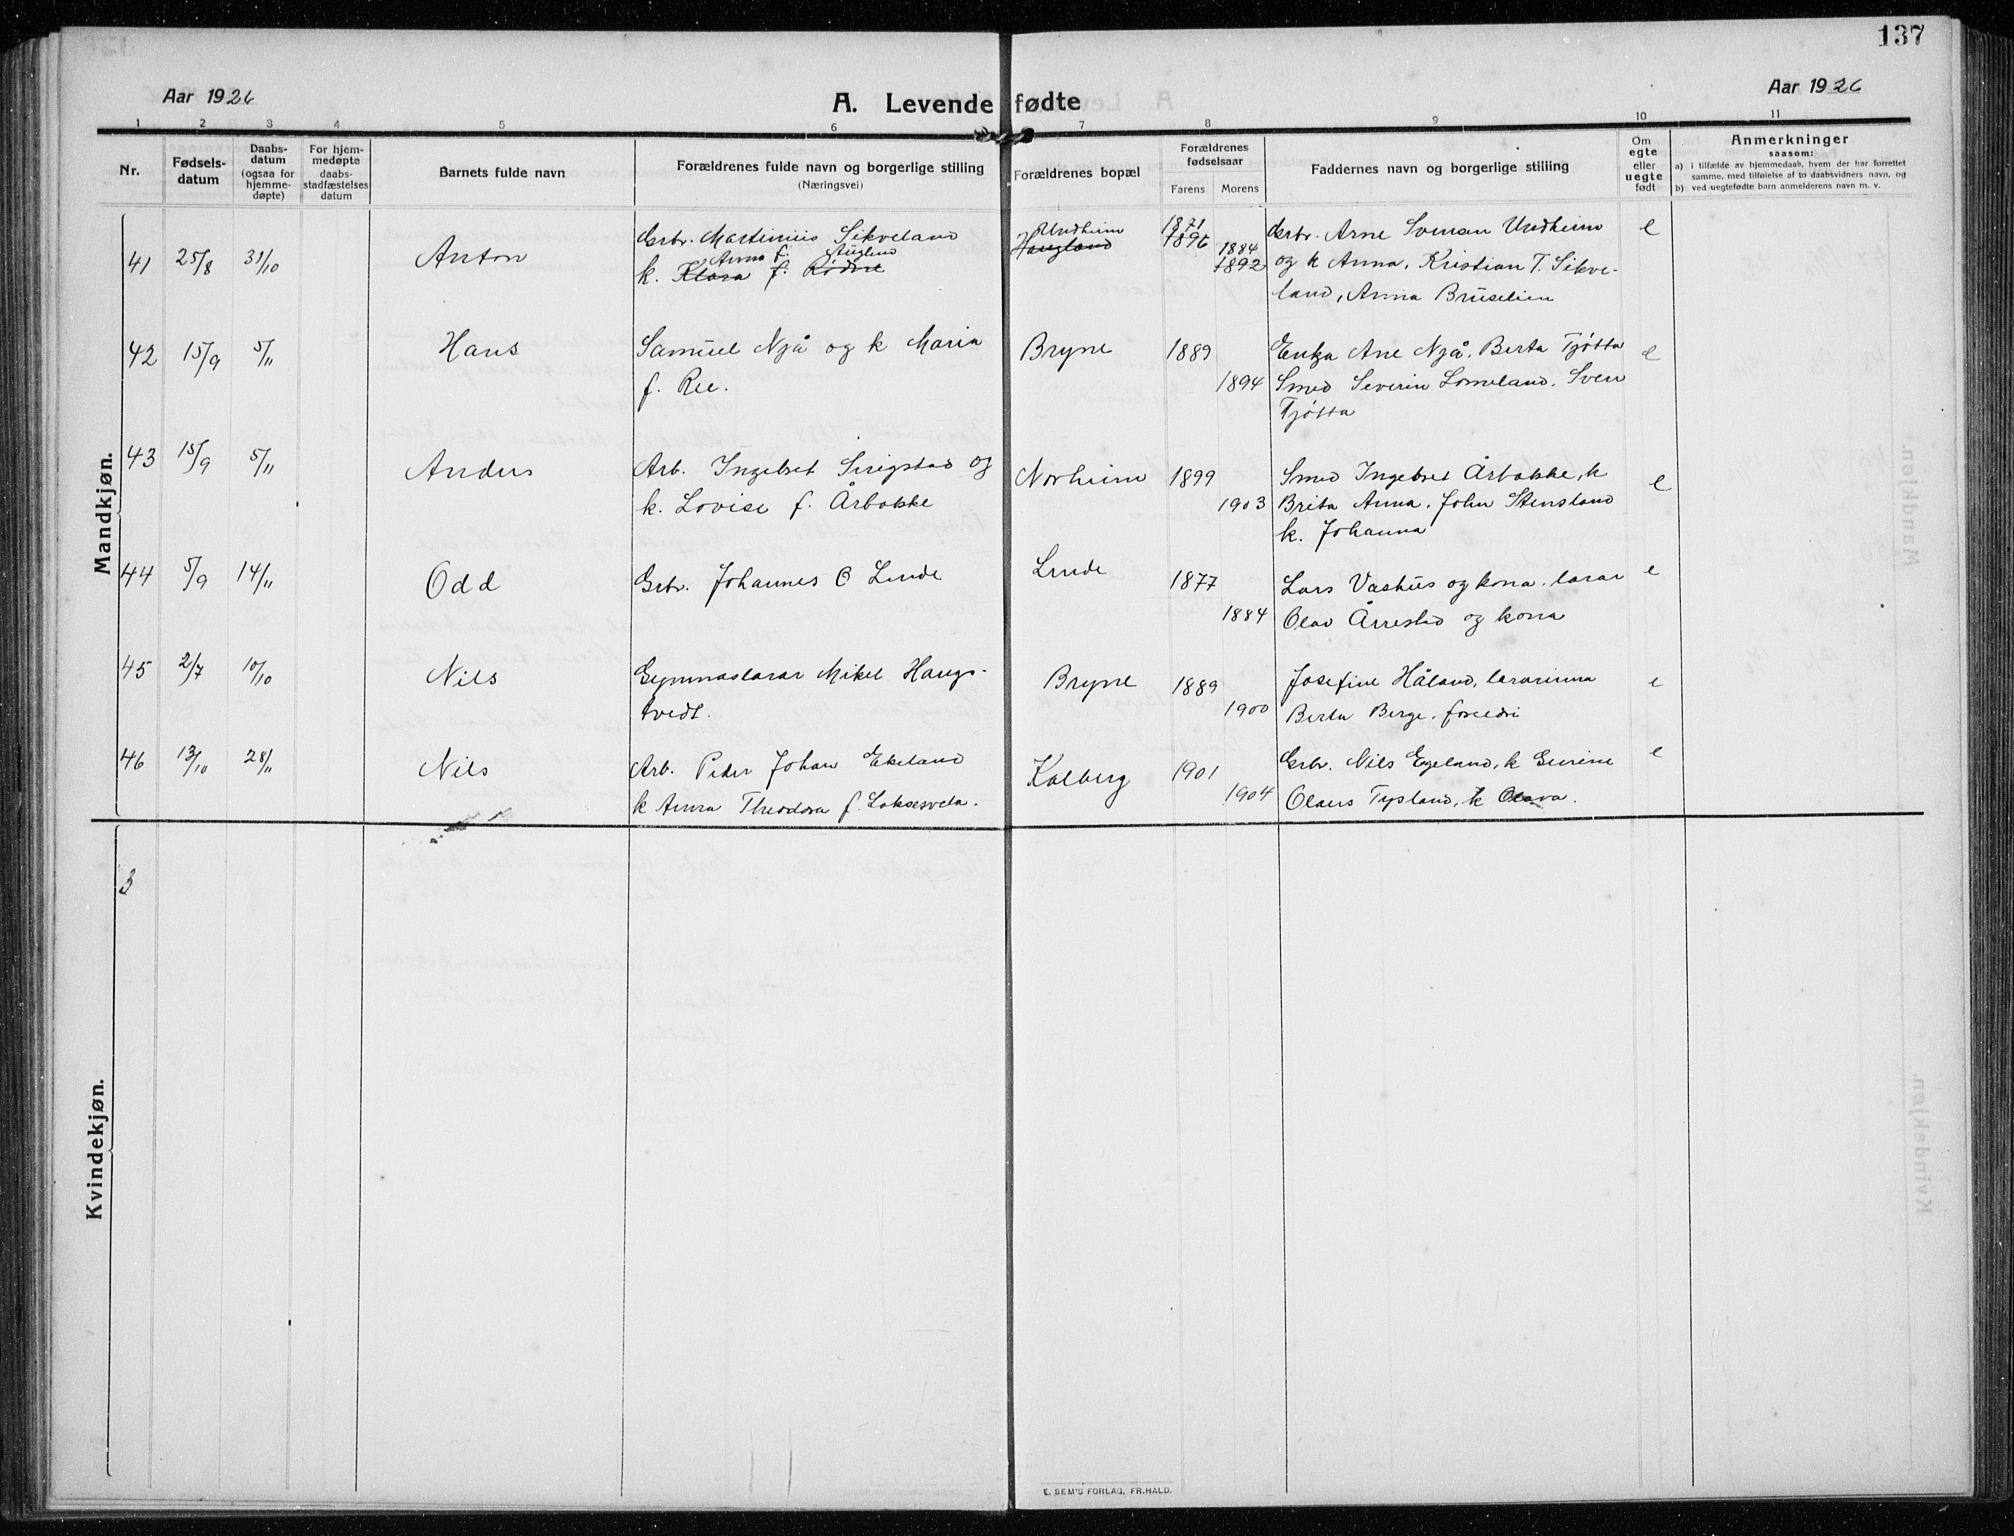 137
Aar 1926
A. Levende fødte
Aar 1926
1 2 3 4 5 6 7 8 9 10 11
Nr.
Fødsels-
datum
Daabs-
datum
(ogsaa for
hjemme-
døpte)
For hjem-
medøpte
daabs-
stadfæstelses
datum
Barnets fulde navn
Forældrenes fulde navn og borgerlige stilling
(Næringsvei)
Forældrenes bopæl
Forældrenes
fødselsaar
Farens Morens
Faddernes navn og borgerlige stilling
Om
egte
eller
uegte
født
Anmerkninger
saasom:
a) i tilfælde av hjemmedaab, hvem der har forrettet
samme, med tilføielse af to daabsvidners navn, og
b) ved uegtefødte barn anmelderens navn m. v.
Mandkjøn.
41 25/8 31/10 Anton
Grbr. Martinius Sikveland
Anna f. Auglend
k. Klara f. Rødne
Undheim
Haugland
1871
1896
1884
1892
Grbr. Arne Soman Undheim
og k Anna, Kristian T. Sikve-
land, Anna Bruselien
e
42 15/9 5/11 Hans
Samuel Njå og k Maria
f. Ree.
Bryne 1889
1894
Enkja Ane Njå, Berta Tjøtta
Smed Severin Lomeland, Sven
Tjøtta
e
43 15/9 5/11 Anders
Arb. Ingebret Sirigstad og
k. Lovise f. Årbakke
Norheim 1899
1903
Smed Ingebret Årbakke, k
Brita Anna, John Stensland
k. Johanna
e
44 5/9 14/11 Odd
Grbr. Johannes O Lende
Lende 1877
1884
Lars Vashus og kona, lærar
Olav Årrestad og kona
e
45 2/7 10/10 Nils
Gymnaslærar Mikel Haugs-
tvedt.
Bryne 1889
1900
Josefine Håland, lærarinna
Berta Berge, foreldri
e
46 13/10 28/11 Nils
Arb. Peder Johan Ekeland
k Anna Theodora f. Laksesvela.
Kalberg 1901
1904
Grbr. Nils Egeland, k Gurine
Olaus Tysland, k Olava.
e
Kvindekjøn.
3
E. SEM'S FORLAG, FR.HALD.